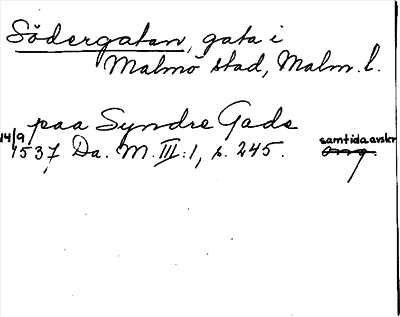 Södergatan, gata i
Malmö stad, Malm. l.
paa Syndre Gade
14/9 1537 Da. M. III:1, s. 245. samtida avskr